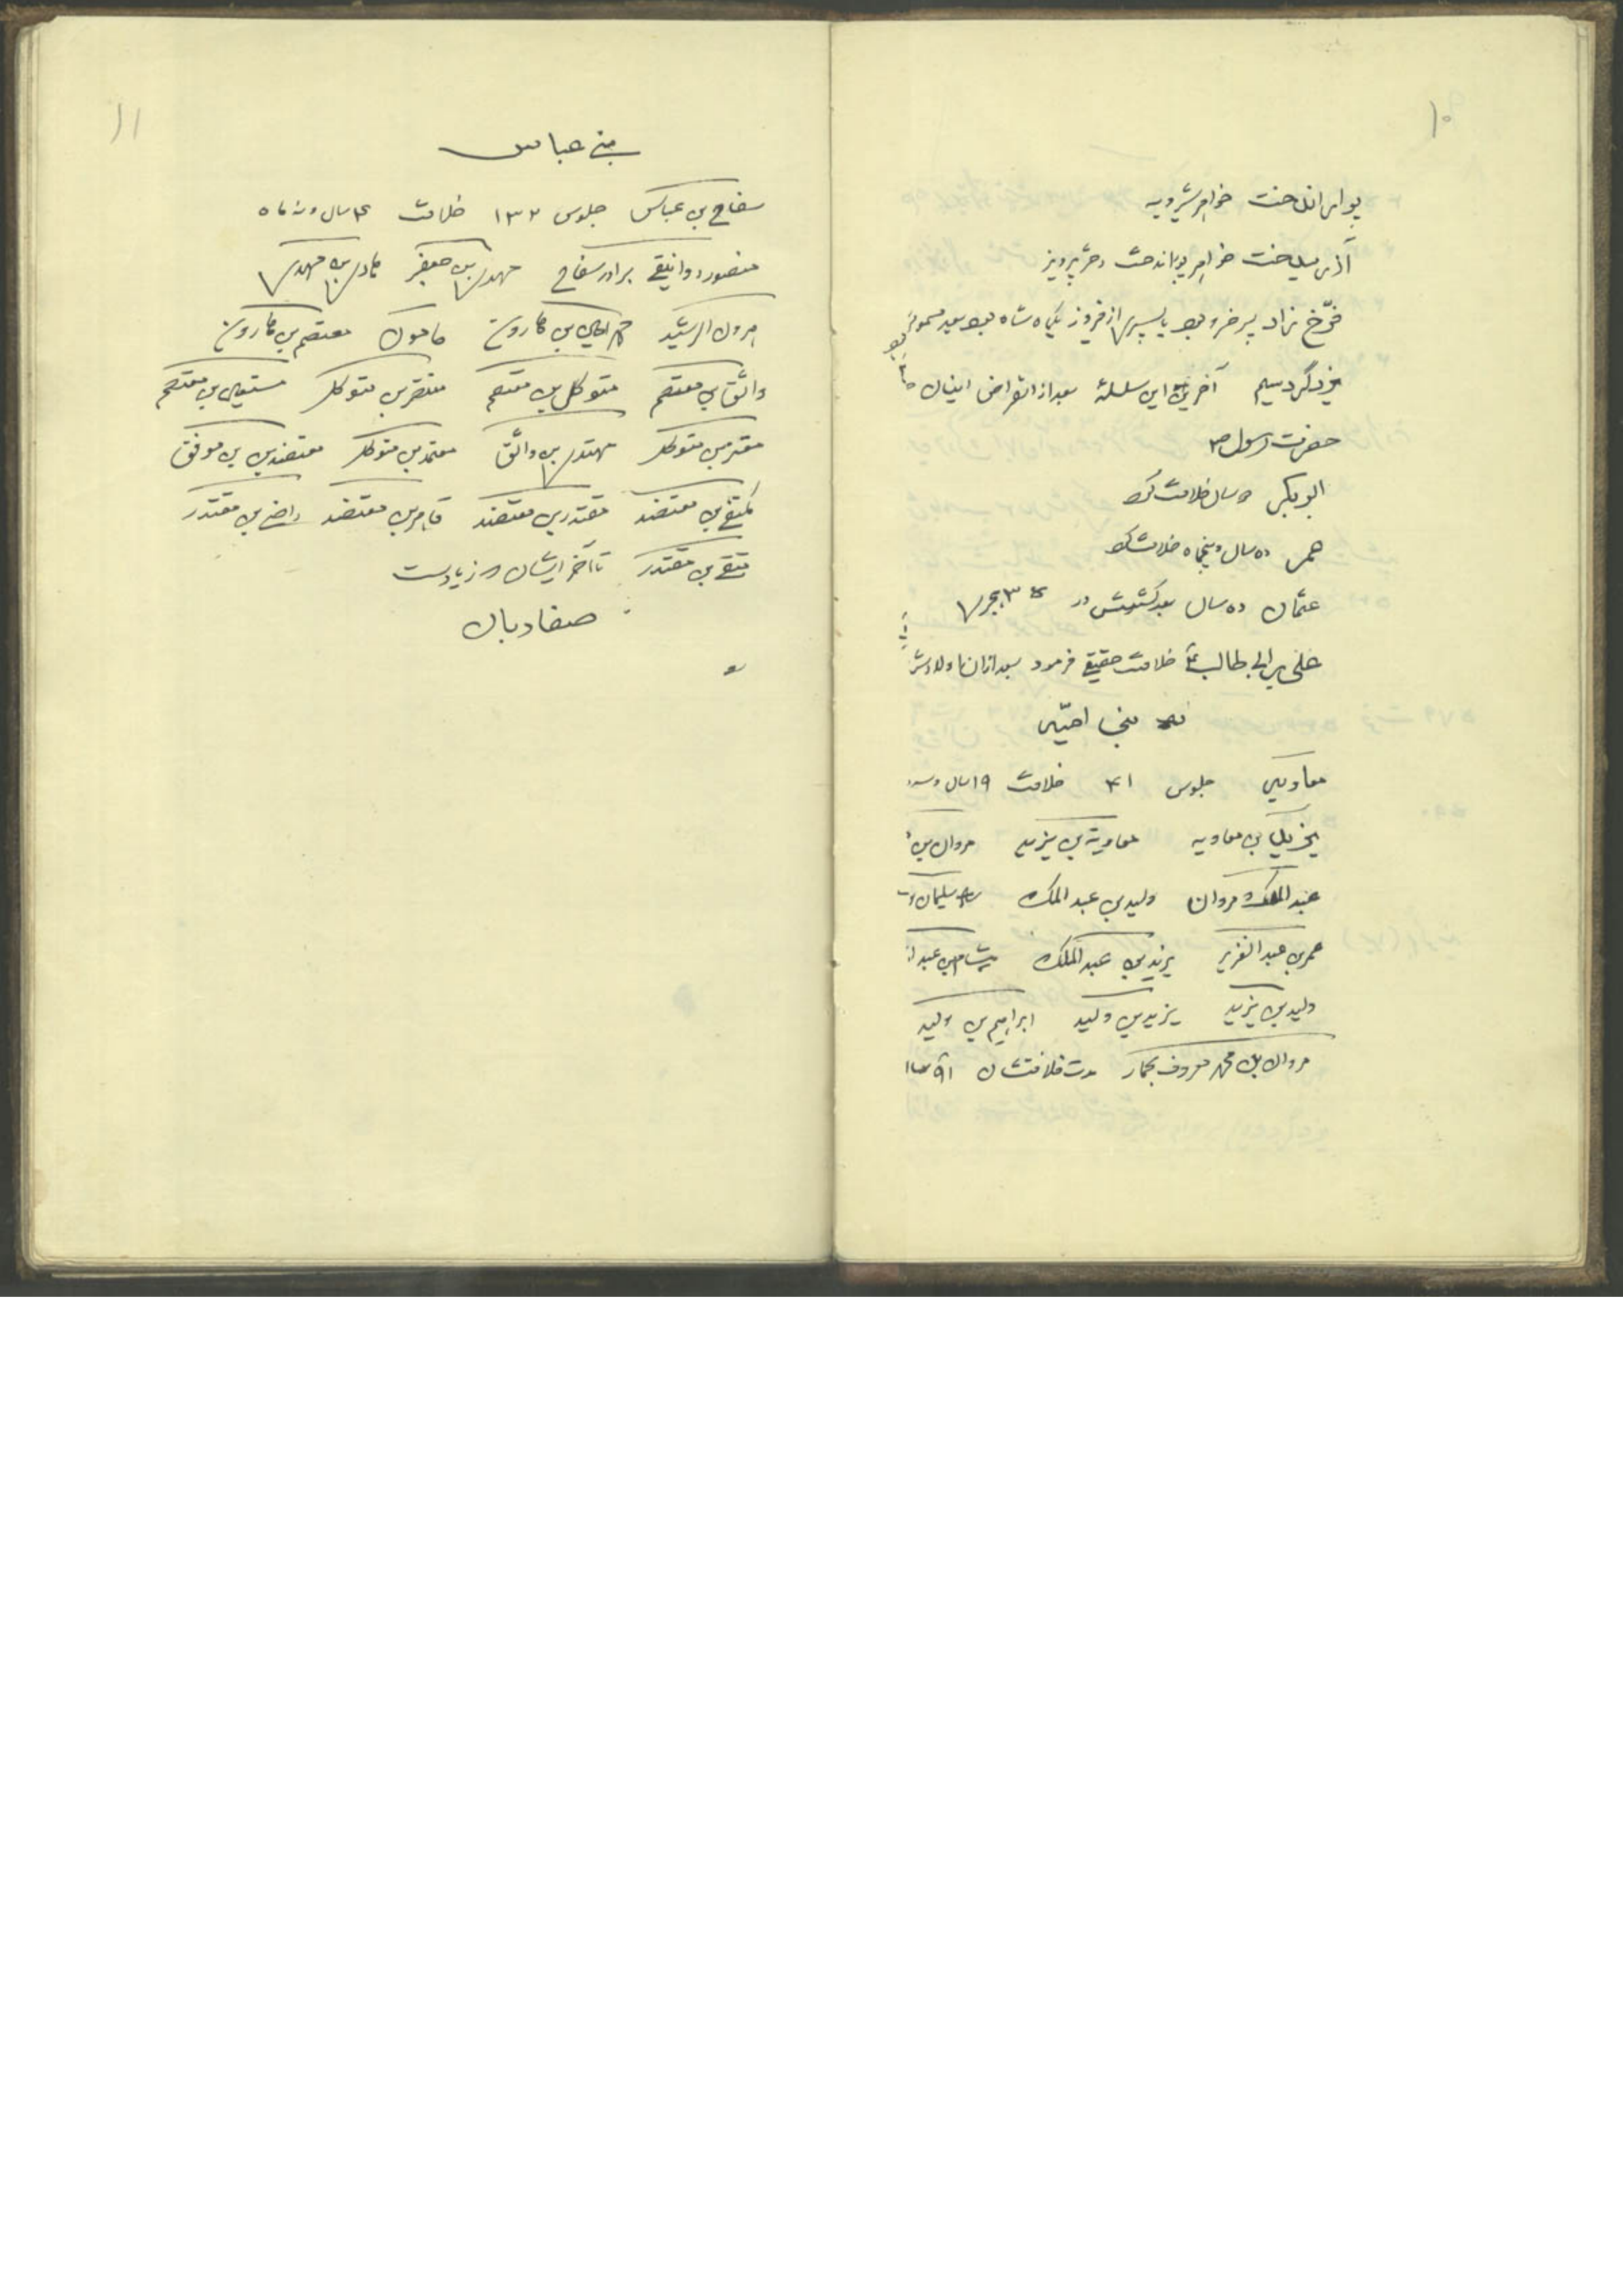 ۱۰
پوراندخت خواهر شیرویه
آذرمیدخت خواهر پوراندخت دختر پرویز
فرّخ نژاد پسر خسرو بود یا پسری از فیروز یکماه شاه بود بعد مسموم
یزدگرد سیم آخرین این سلسله بعد از انقراض اینان
حضرت رسول ص
ابوبکر ۲ سال خلافت کرد
عمر ده سال و پنجماه خلافت کرد
عثمان ده سال بعد کشتندش در ۳۵ هجری
علی بن ابی طالب ع خلافت حقیقی فرمود بعد از آن اولادش
بنی امیّه
معاویه جلوس ۴۱ خلافت ۱۹ سال و سه
یزید بن معاویه معاویة بن یزید مروان بن
عبدالملک مروان ولید بن عبدالملک سلیمان
عمر بن عبدالعزیز یزید بن عبدالملک هشام بن عبدا
ولید بن یزید یزید بن ولید ابراهیم بن ولید
مروان بن محمد معروف بحمار مدت خلافتشان ۹۱ سا
۱۱
بنی عباس
سفاح بن عباس جلوس ۱۳۲ خلافت ۴ سال و نه ماه
منصور دوانیقی برادر سفاح مهدی بن جعفر هادی بن مهدی
هرون الرشید محمد امین بن هارون مامون معتصم بن هارون
واثق بن معتصم متوکل بن معتصم منتصر بن متوکل مستعین بن معتصم
معتز بن متوکل مهتدی بن واثق معتمد بن متوکل معتضد بن موفق
مکتفی بن معتضد مقتدر بن معتضد قاهر بن معتضد راضی بن مقتدر
متقی بن مقتدر تا آخر ایشان زیاد است
صفاریان